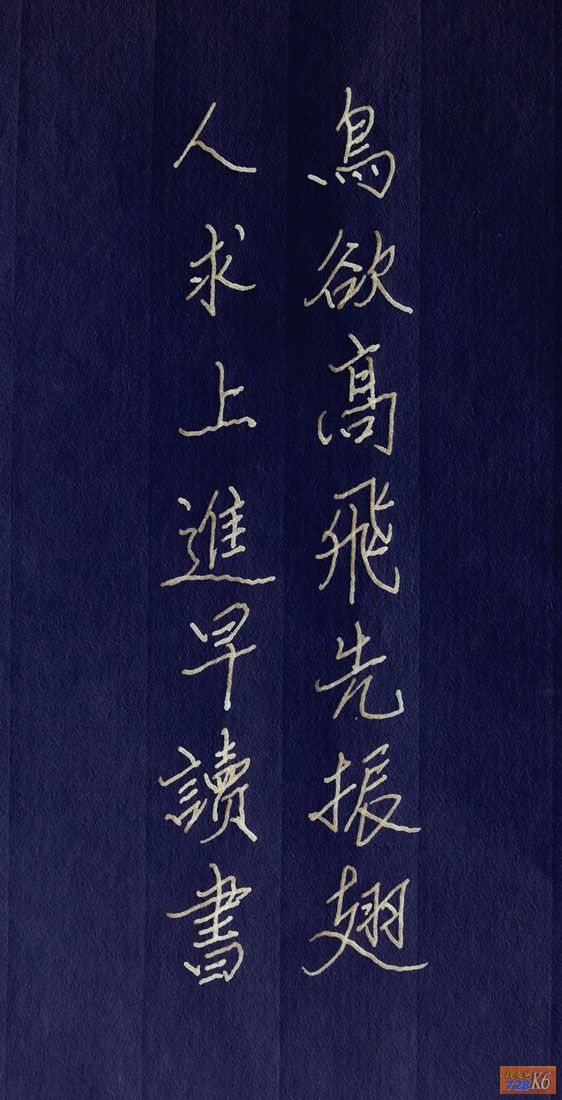 鳥欲髙飛先振翅
人求上進早讀書
728 K6